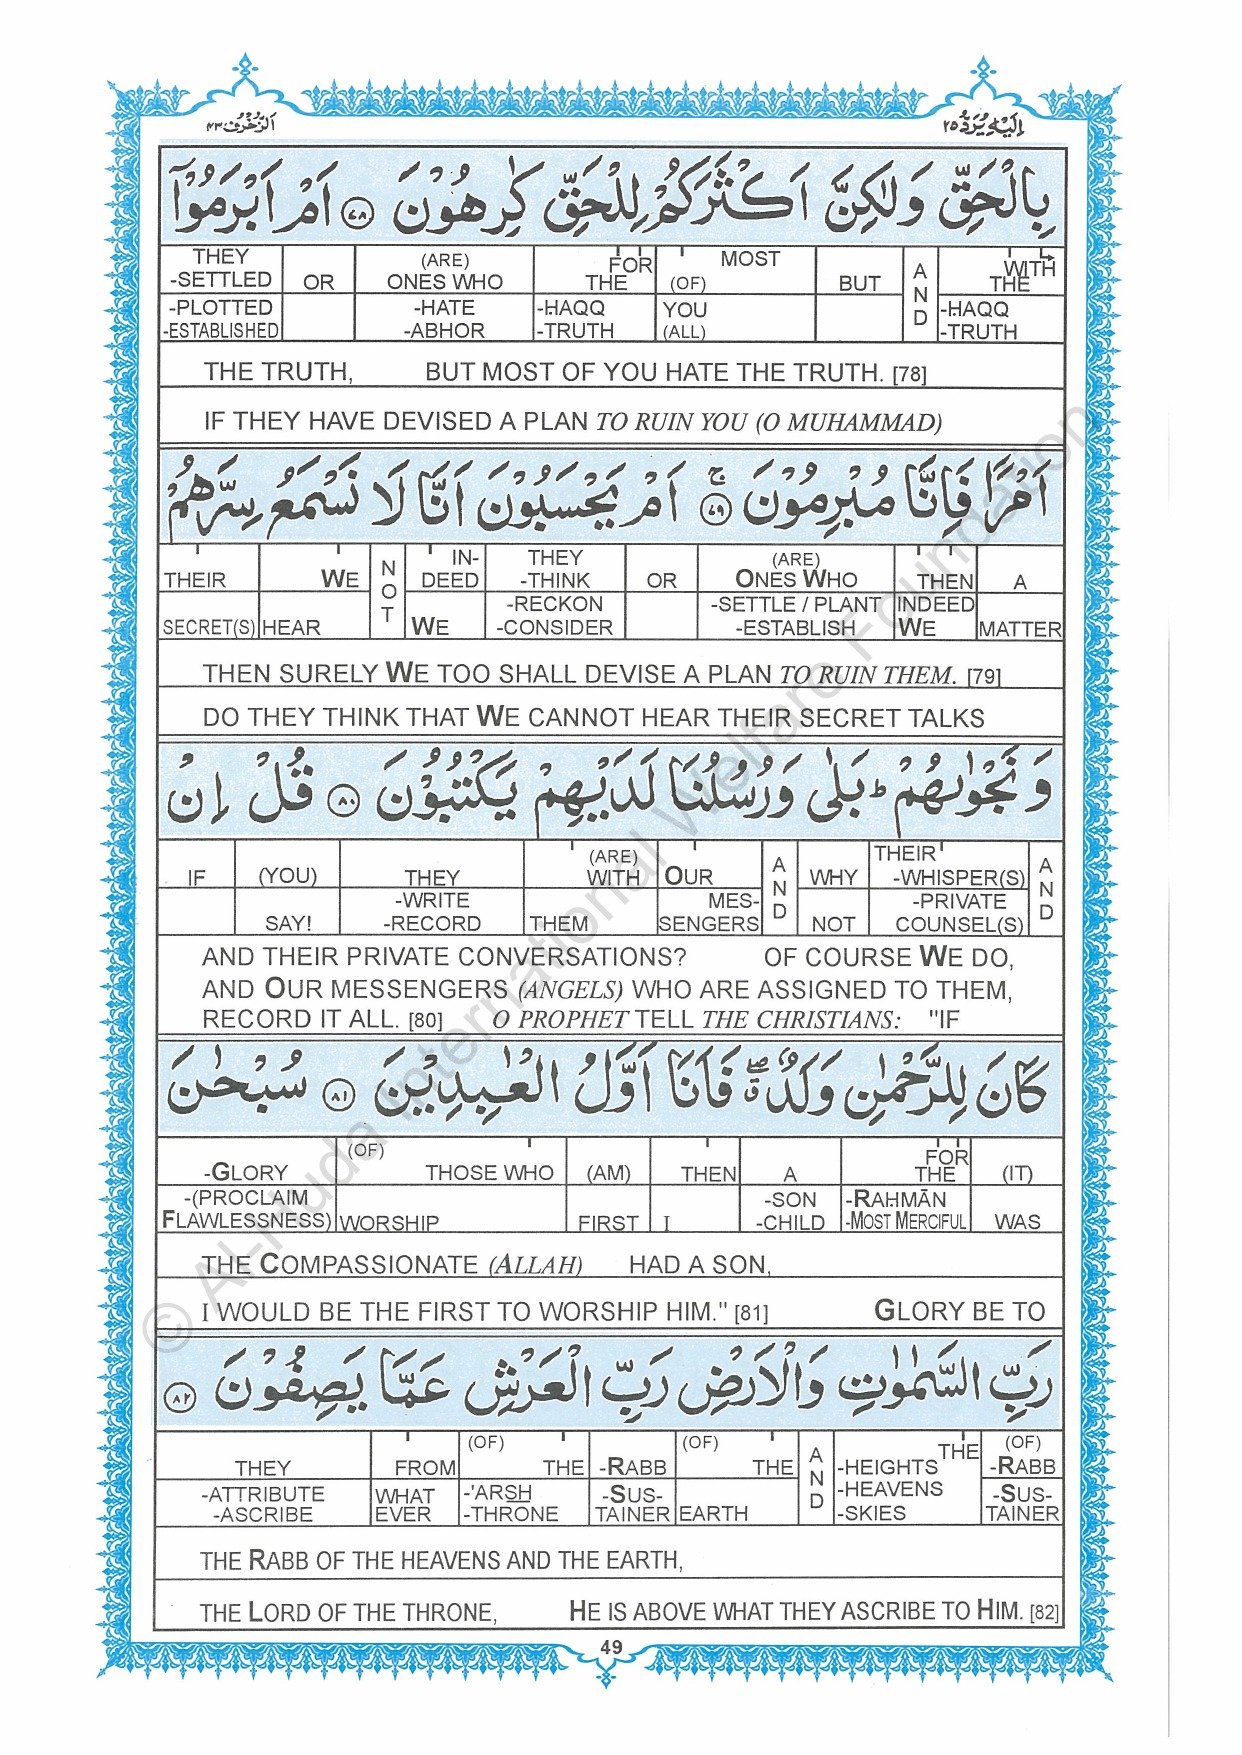 الزخرف ٤٣
اليه يرد ٢٥
بِالْحَقِّ وَلٰكِنَّ اَكْثَرَكُمْ لِلْحَقِّ كٰرِهُوْنَ ﴿٧٨﴾ اَمْ اَبْرَمُوْٓا
THEY -SETTLED -PLOTTED -ESTABLISHED | OR | (ARE) ONES WHO -HATE -ABHOR | FOR THE -HAQQ -TRUTH | MOST (OF) YOU (ALL) | BUT | AND | WITH THE -HAQQ -TRUTH
THE TRUTH, BUT MOST OF YOU HATE THE TRUTH. [78]
IF THEY HAVE DEVISED A PLAN TO RUIN YOU (O MUHAMMAD)
اَمْرًا فَاِنَّا مُبْرِمُوْنَ ﴿٧٩﴾ۚ اَمْ يَحْسَبُوْنَ اَنَّا لَا نَسْمَعُ سِرَّهُمْ
THEIR SECRET(S) | WE HEAR | NOT | IN-DEED WE | THEY -THINK -RECKON -CONSIDER | OR | (ARE) ONES WHO -SETTLE / PLANT -ESTABLISH | THEN INDEED WE | A MATTER
THEN SURELY WE TOO SHALL DEVISE A PLAN TO RUIN THEM. [79]
DO THEY THINK THAT WE CANNOT HEAR THEIR SECRET TALKS
وَنَجْوٰىهُمْ ؕ بَلٰى وَرُسُلُنَا لَدَيْهِمْ يَكْتُبُوْنَ ﴿٨٠﴾ قُلْ اِنْ
IF | (YOU) SAY! | THEY -WRITE -RECORD | (ARE) WITH THEM | OUR MES-SENGERS | AND | WHY NOT | THEIR -WHISPER(S) -PRIVATE COUNSEL(S) | AND
AND THEIR PRIVATE CONVERSATIONS? OF COURSE WE DO,
AND OUR MESSENGERS (ANGELS) WHO ARE ASSIGNED TO THEM,
RECORD IT ALL. [80] O PROPHET TELL THE CHRISTIANS: "IF
كَانَ لِلرَّحْمٰنِ وَلَدٌ ۖۗ فَاَنَا اَوَّلُ الْعٰبِدِيْنَ ﴿٨١﴾ سُبْحٰنَ
-GLORY -(PROCLAIM FLAWLESSNESS) | (OF) THOSE WHO WORSHIP | (AM) FIRST | THEN I | A -SON -CHILD | FOR THE -RAHMĀN -MOST MERCIFUL | (IT) WAS
THE COMPASSIONATE (ALLAH) HAD A SON,
I WOULD BE THE FIRST TO WORSHIP HIM." [81] GLORY BE TO
رَبِّ السَّمٰوٰتِ وَالْاَرْضِ رَبِّ الْعَرْشِ عَمَّا يَصِفُوْنَ ﴿٨٢﴾
THEY -ATTRIBUTE -ASCRIBE | FROM WHAT EVER | (OF) THE -'ARSH -THRONE | -RABB -SUS-TAINER | (OF) THE EARTH | AND | THE -HEIGHTS -HEAVENS -SKIES | (OF) -RABB -SUS-TAINER
THE RABB OF THE HEAVENS AND THE EARTH,
THE LORD OF THE THRONE, HE IS ABOVE WHAT THEY ASCRIBE TO HIM. [82]
49
© Al-Huda International Welfare Foundation